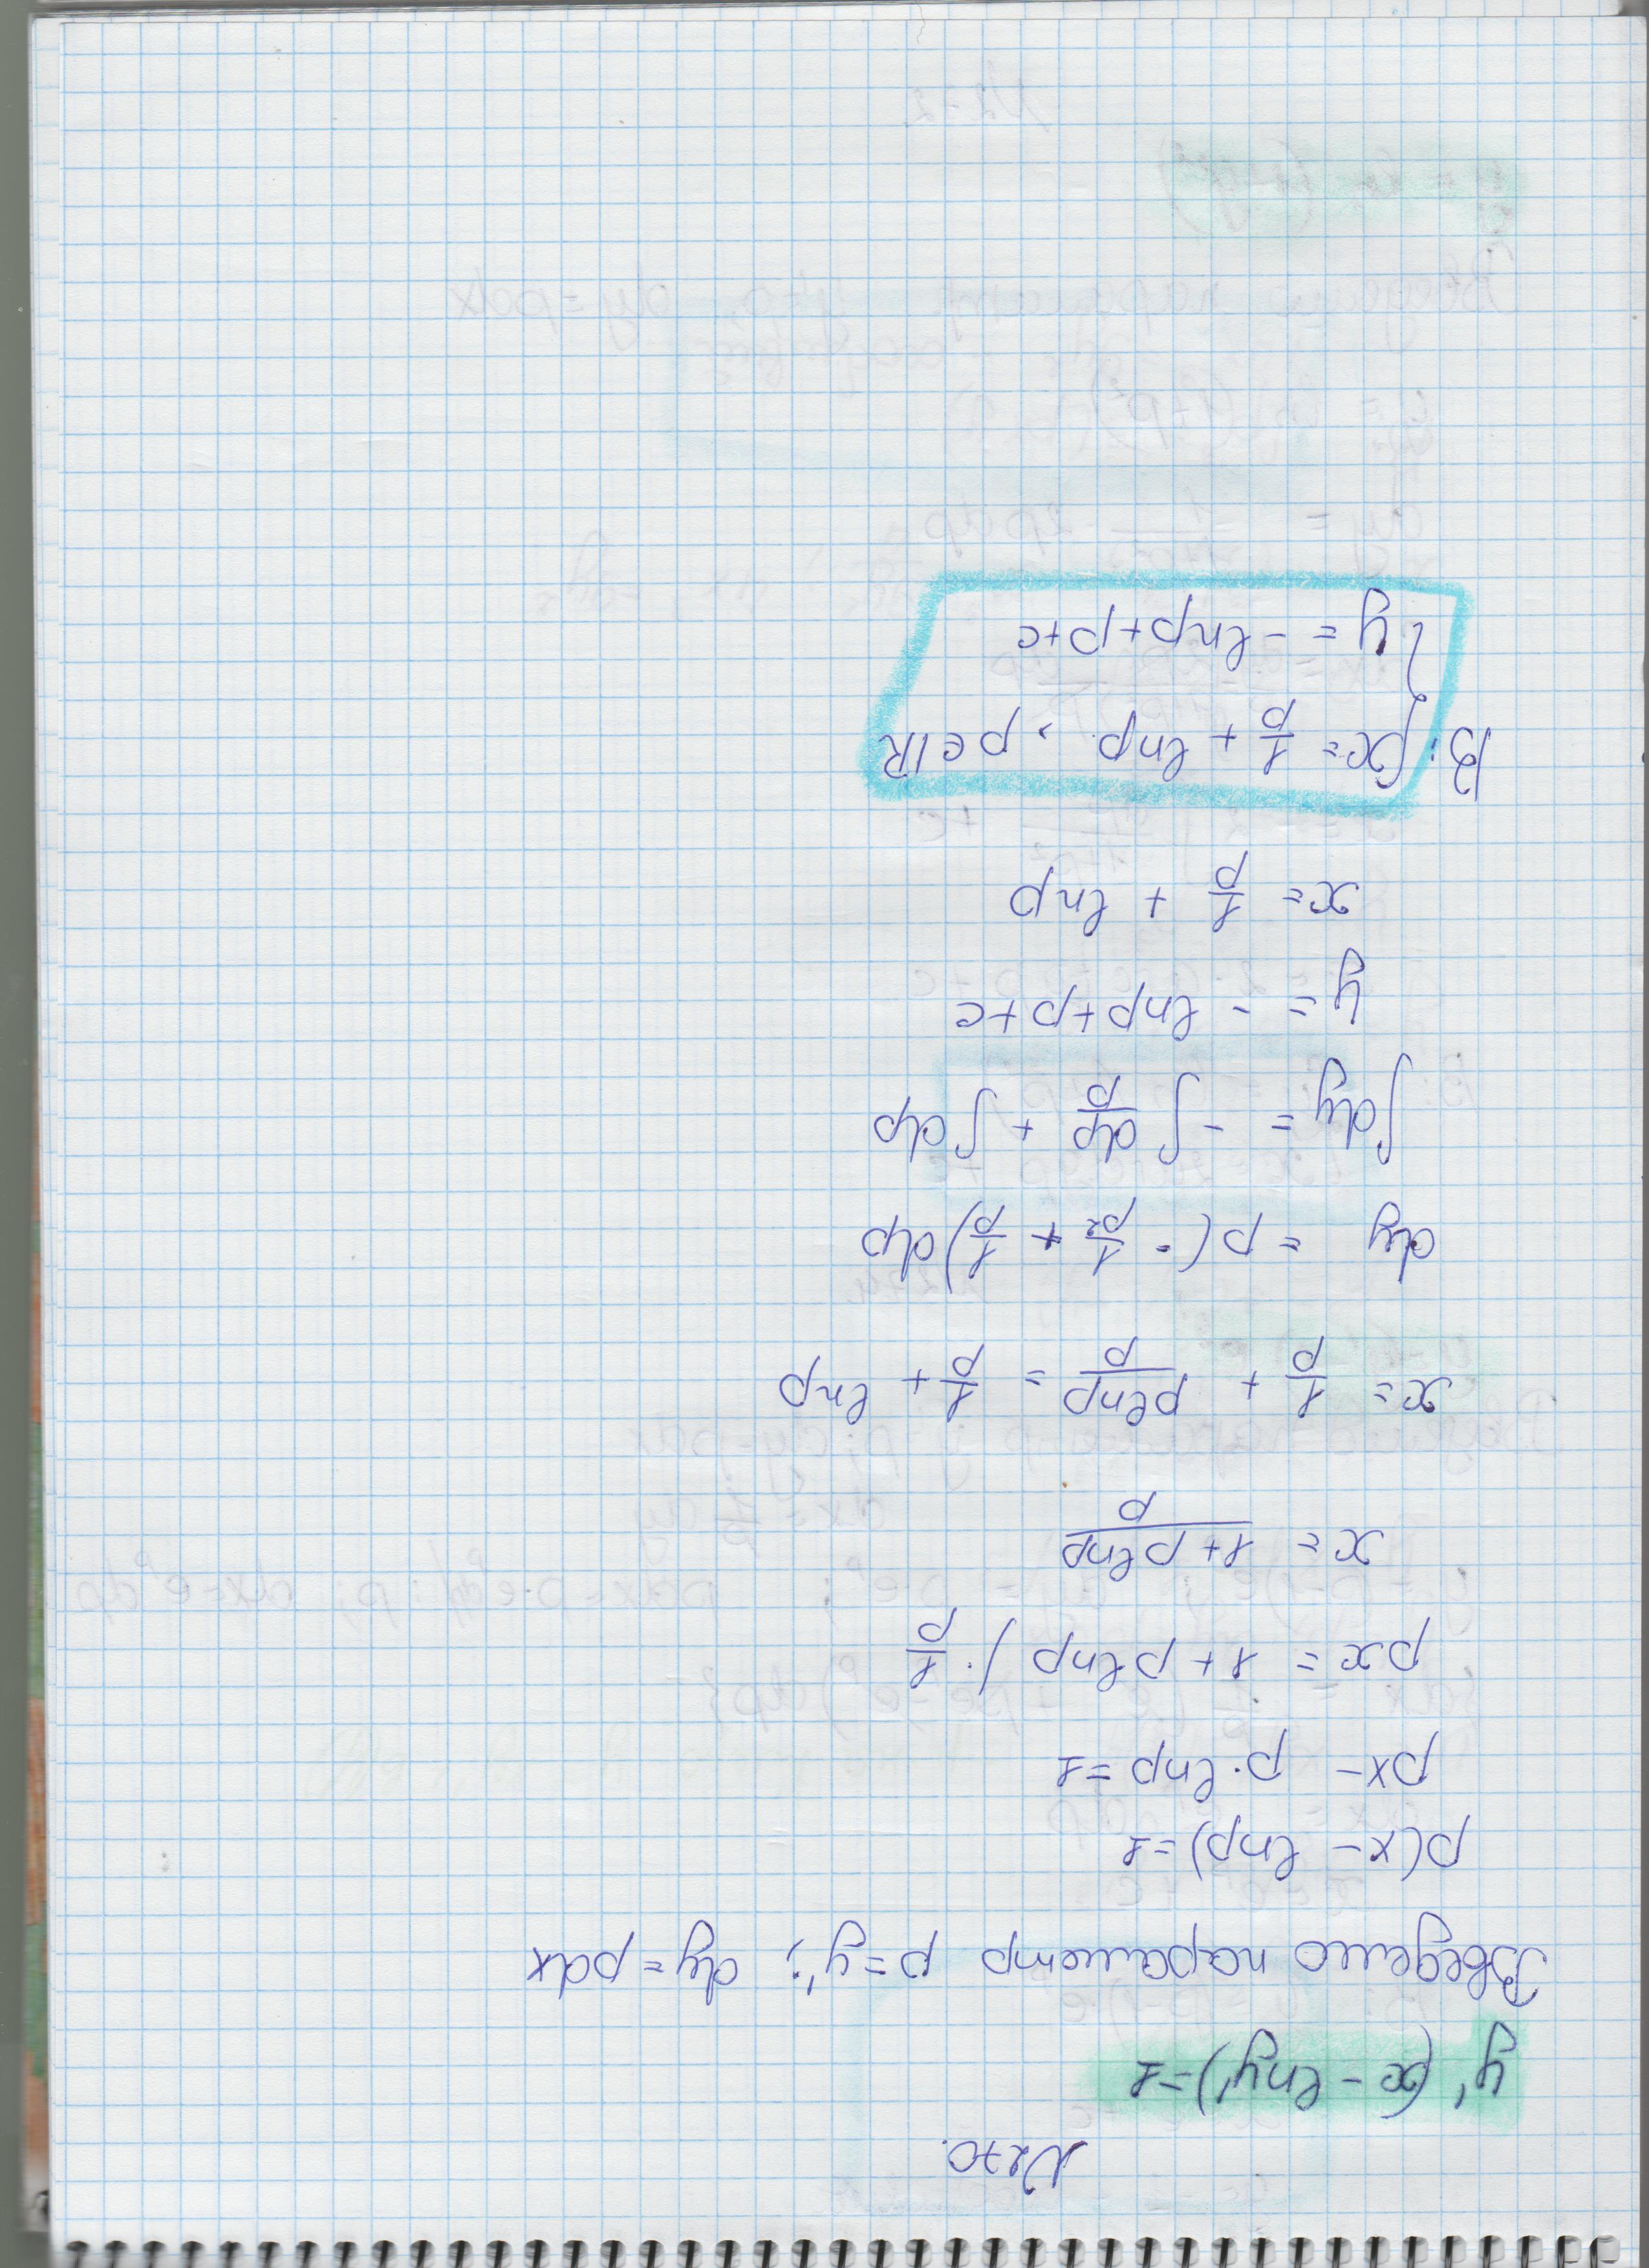 N270.
y' (x - ln y') = 1
Введемо параметр p = y'; dy = pdx
p(x - lnp) = 1
px - p·lnp = 1
px = 1 + p lnp /· 1/p
x = (1 + p lnp)/p
x = 1/p + plnp/p = 1/p + lnp
dy = p(- 1/p² + 1/p)dp
∫dy = - ∫ dp/p + ∫dp
y = - lnp + p + c
x = 1/p + lnp
В: { x = 1/p + lnp , p∈ℝ
y = - lnp + p + c